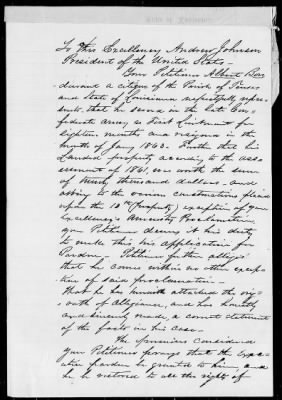 To His Excellency Andrew Johnson
President of the United States—
Your Petitioner Albert Bon
durant a citizen of the Parish of Tensas
and State of Louisiana respectfully repre-
sents, that he served in the late Con-
federate army as First Lieutenant for
eighteen months and resigned in the
month of Jany 1863. Further that his
landed property according to the ass
essment of 1861, was worth the sum
of thousand dollars— and
owing to the various constructions placed
upon the 13th (property) exception of your
Excellency's Amnesty Proclamation
your Petitioner deems it his duty
to make this his application for
Pardon. Petitioner further alleges
that he comes within no other excep-
tion of said proclamation—
that he has hereunto attached the orig
oath of Allegiance, and has honestly
and sincerely made, a correct statement
of the facts in his case—
The premises considered
your Petitioner prays that the Exec-
utive pardon be granted to him, and
he be restored to all the rights of